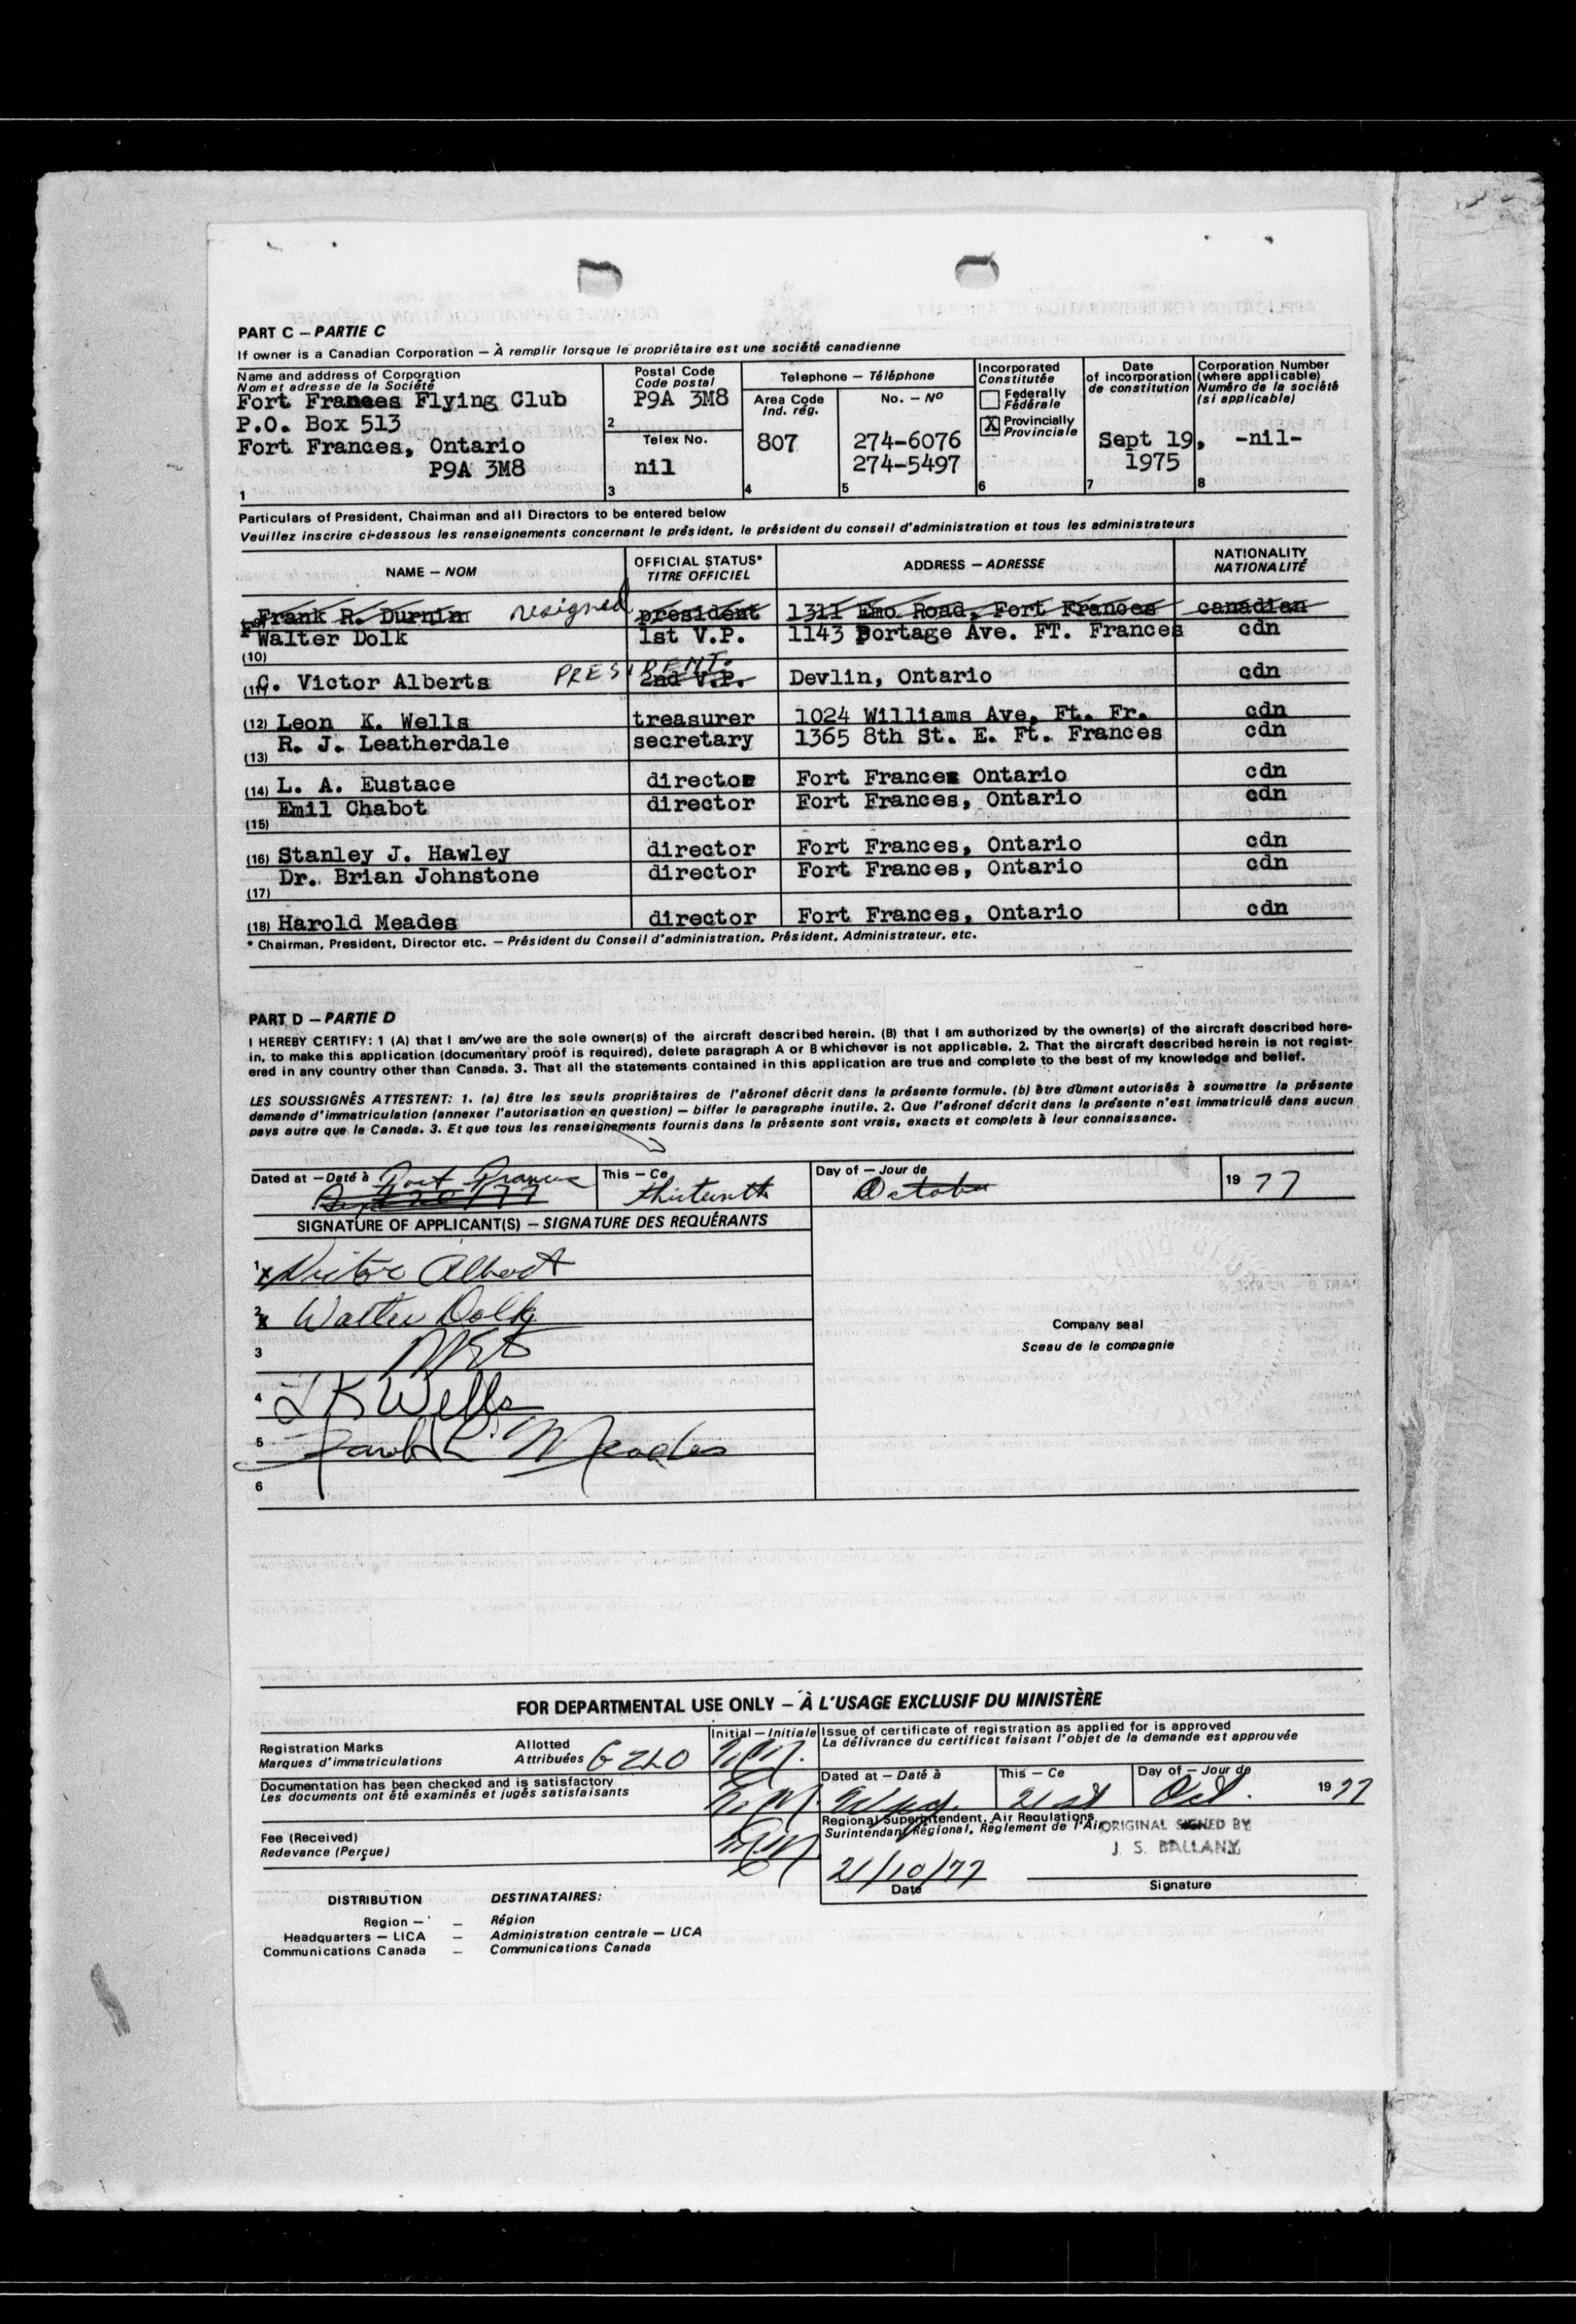 PART C – PARTIE C
If owner is a Canadian Corporation – À remplir lorsque le propriétaire est une société canadienne
Name and address of Corporation
Nom et adresse de la Société
Fort Frances Flying Club
P.O. Box 513
Fort Frances, Ontario
P9A 3M8
1
Postal Code
Code postal
P9A 3M8
2
Telex No.
nil
3
Telephone – Téléphone
Area Code
Ind. rég.
807
4
No. – Nº
274-6076
274-5497
5
Incorporated
Constitutée
Federally
Fédérale
X Provincially
Provinciale
6
Date
of incorporation
de constitution
Sept 19,
1975
7
Corporation Number
(where applicable)
Numéro de la société
(si applicable)
-nil-
8
Particulars of President, Chairman and all Directors to be entered below
Veuillez inscrire ci-dessous les renseignements concernant le président, le président du conseil d'administration et tous les administrateurs
NAME – NOM OFFICIAL STATUS* TITRE OFFICIEL ADDRESS – ADRESSE NATIONALITY NATIONALITÉ
Frank R. Durnin resigned president 1311 Emo Road, Fort Frances canadian
Walter Dolk 1st V.P. 1143 Portage Ave. FT. Frances cdn
(10)
(11) C. Victor Alberts PRESIDENT. 2nd V.P. Devlin, Ontario cdn
(12) Leon K. Wells treasurer 1024 Williams Ave, Ft. Fr. cdn
R. J. Leatherdale secretary 1365 8th St. E. Ft. Frances cdn
(13)
(14) L. A. Eustace director Fort Frances Ontario cdn
Emil Chabot director Fort Frances, Ontario cdn
(15)
(16) Stanley J. Hawley director Fort Frances, Ontario cdn
Dr. Brian Johnstone director Fort Frances, Ontario cdn
(17)
(18) Harold Meades director Fort Frances, Ontario cdn
* Chairman, President, Director etc. – Président du Conseil d'administration, Président, Administrateur, etc.
PART D – PARTIE D
I HEREBY CERTIFY: 1 (A) that I am/we are the sole owner(s) of the aircraft described herein. (B) that I am authorized by the owner(s) of the aircraft described here-
in, to make this application (documentary proof is required), delete paragraph A or B whichever is not applicable. 2. That the aircraft described herein is not regist-
ered in any country other than Canada. 3. That all the statements contained in this application are true and complete to the best of my knowledge and belief.
LES SOUSSIGNÉS ATTESTENT: 1. (a) être les seuls propriétaires de l'aéronef décrit dans la présente formule. (b) être dûment autorisés à soumettre la présente
demande d'immatriculation (annexer l'autorisation en question) – biffer le paragraphe inutile. 2. Que l'aéronef décrit dans la présente n'est immatriculé dans aucun
pays autre que le Canada. 3. Et que tous les renseignements fournis dans la présente sont vrais, exacts et complets à leur connaissance.
Dated at – Daté à Fort Frances This – Ce thirteenth Day of – Jour de October 19 77
Sept 20/77
SIGNATURE OF APPLICANT(S) – SIGNATURE DES REQUÉRANTS
1 x Victor Albert
2 x Walter Dolk
3
4 L K Wells
5 Meades
6
Company seal
Sceau de la compagnie
FOR DEPARTMENTAL USE ONLY – À L'USAGE EXCLUSIF DU MINISTÈRE
Registration Marks Allotted
Marques d'immatriculations Attribuées GZLO
Initial – Initiale
Documentation has been checked and is satisfactory
Les documents ont été examinés et jugés satisfaisants
Fee (Received)
Redevance (Perçue)
Issue of certificate of registration as applied for is approved
La délivrance du certificat faisant l'objet de la demande est approuvée
Dated at – Daté à Wpg. This – Ce 21st Day of – Jour de Oct. 19 77
Regional Superintendent, Air Regulations
Surintendant Régional, Règlement de l'Air
ORIGINAL SIGNED BY
J. S. BALLANY
21/10/77
Date
Signature
DISTRIBUTION DESTINATAIRES:
Region – – Région
Headquarters – LICA – Administration centrale – LICA
Communications Canada – Communications Canada